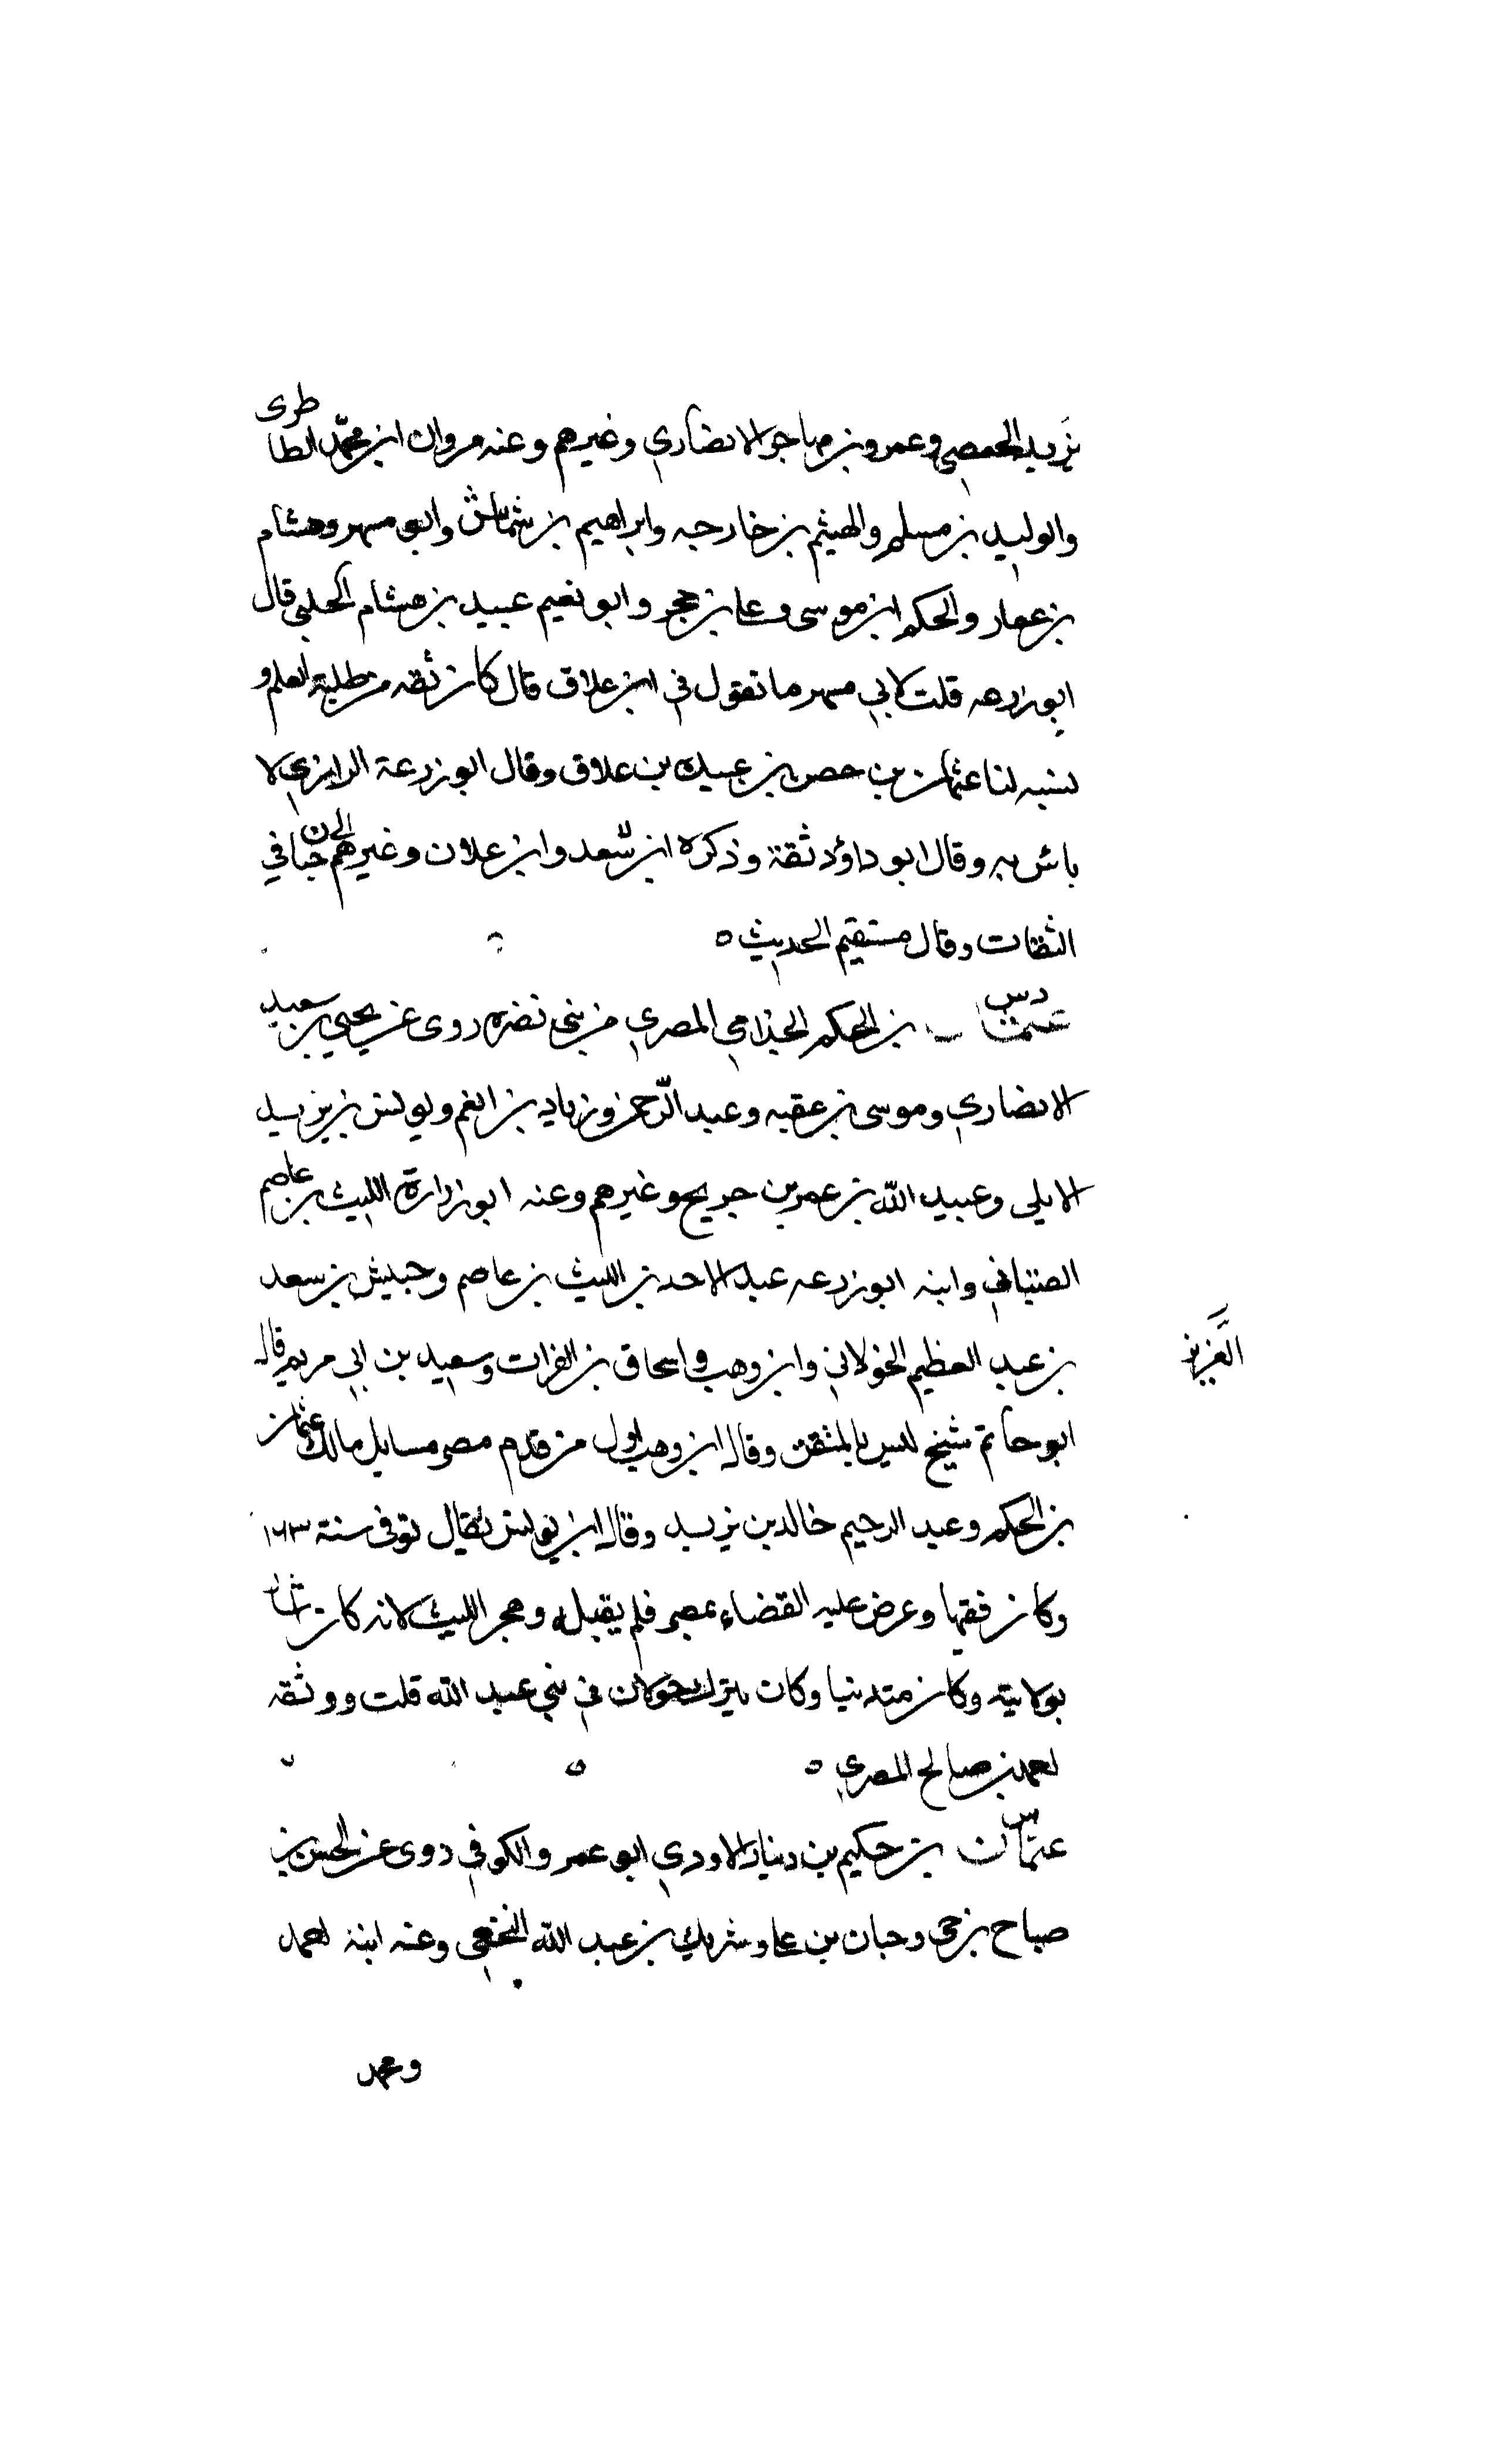 يزيد الحمصي وعمرو بن مهاجر الانصاري وغيرهم وعنه مروان ابن محمد الطاطري
والوليد بن مسلم والهيثم بن خارجه وابراهيم بن شماش وابو مسهر وهشام
بن عمار والحكم ابن موسى وعلى بن حجر وابو نعيم عبيد بن هشام الحلبي قال
ابو زرعه قلت لابي مسهر ما تقول في ابن علاق قال كان ثقه من طلبة العلم و
نسبه لنا عثمان بن حصن بن عبيده بن علاق وقال ابو زرعة الرازي لا
باس به وقال ابو داؤد ثقة وذكره ابن سعد وابن علان وغيرهم حبا في
الثقات وقال مستقيم الحديث ٥
د س
عثمان بن الحكم الجذامي المصري من بني نضره روى عن يحيي بن سعيد
الانصاري وموسى بن عقبه وعبد الرحمن وزياد بن انعم ويونس بن يزيد
الايلي وعبيد الله بن عمر بن جريج وغيرهم وعنه ابو زرارة الليث بن عاصم
القتباني وابنه ابو زرعه عبد الاحد بن الليث بن عاصم وحبيش بن سعد
العزيز
بن عبد العظيم الخولاني وابن وهب واسحاق بن الفرات وسعيد بن ابي مريم قال
ابو حاتم شيخ ليس بالمتقن وقال ابن وهب اول من قدم مصر مسايل مالك عثمان
بن الحكم وعبد الرحيم خالد بن يزيد وقال ابن يونس يقال توفى سنة ١٦٣
وكان فقيها وعرض عليه القضاء بمصر فلم يقبله وهجر الليث لانه كان اشار
بولايته وكان متدينا وكان ينزل بخولان في بني عبد الله قلت ووثقه
احمد بن صالح المصري ٥
س
عثمان بن حكيم بن دينار الاودي ابو عمرو الكوفي روى عن الحسن بن
صباح بن حى وحبان بن على وشريك بن عبد الله النخعي وعنه ابنه احمد
ومحمد